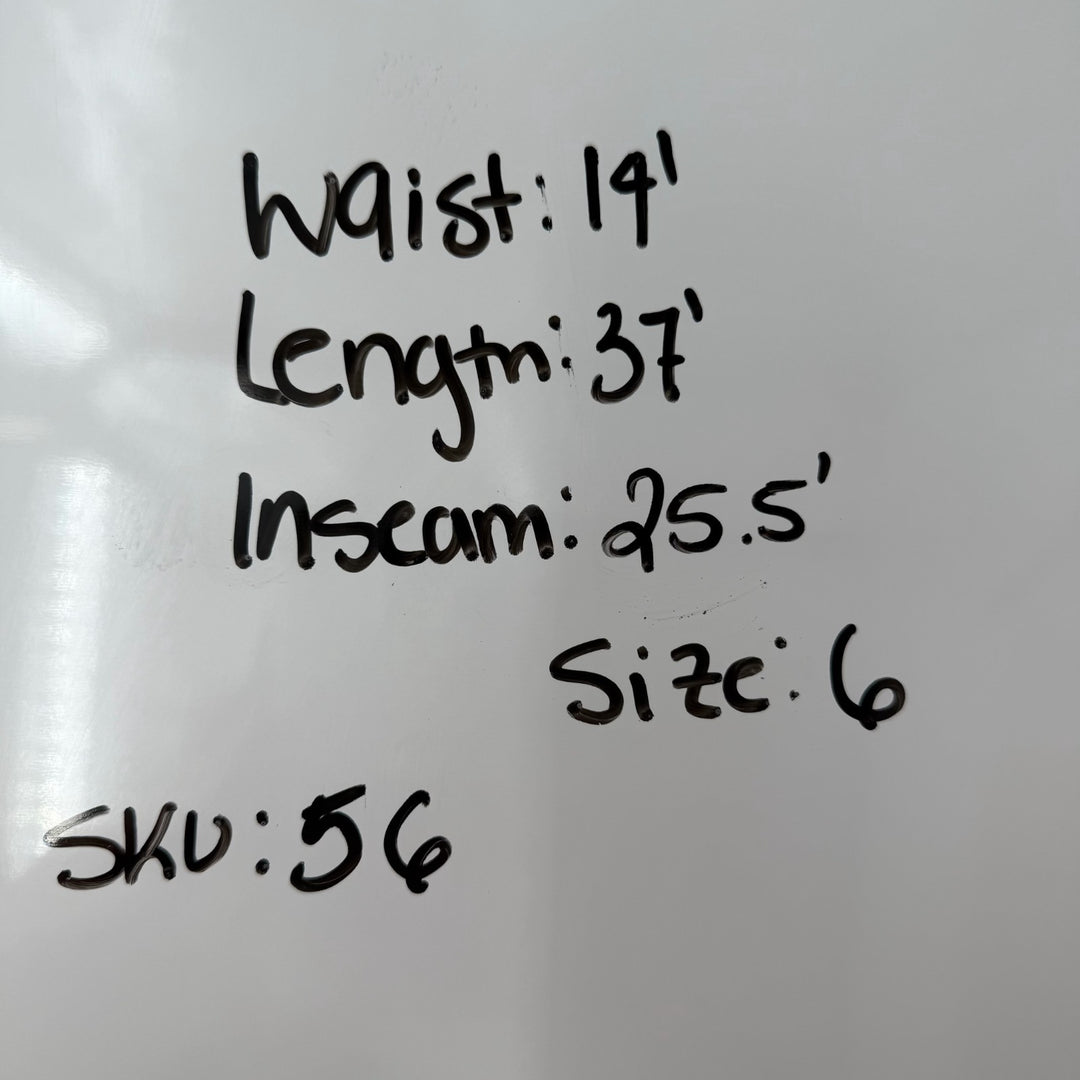 Waist: 14'
Length: 37'
Inseam: 25.5'
Size: 6
SKU: 56